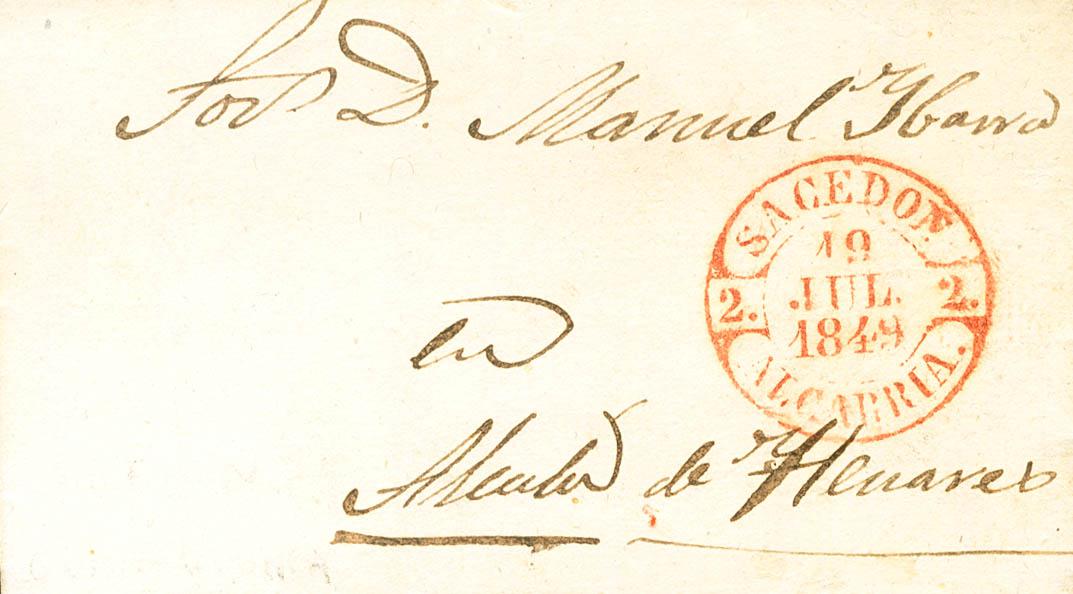 Sor. D. Manuel Ybarra
SACEDON.
19
JUL.
1849
2. 2.
ALCARRIA.
en
Alcalá de Henares